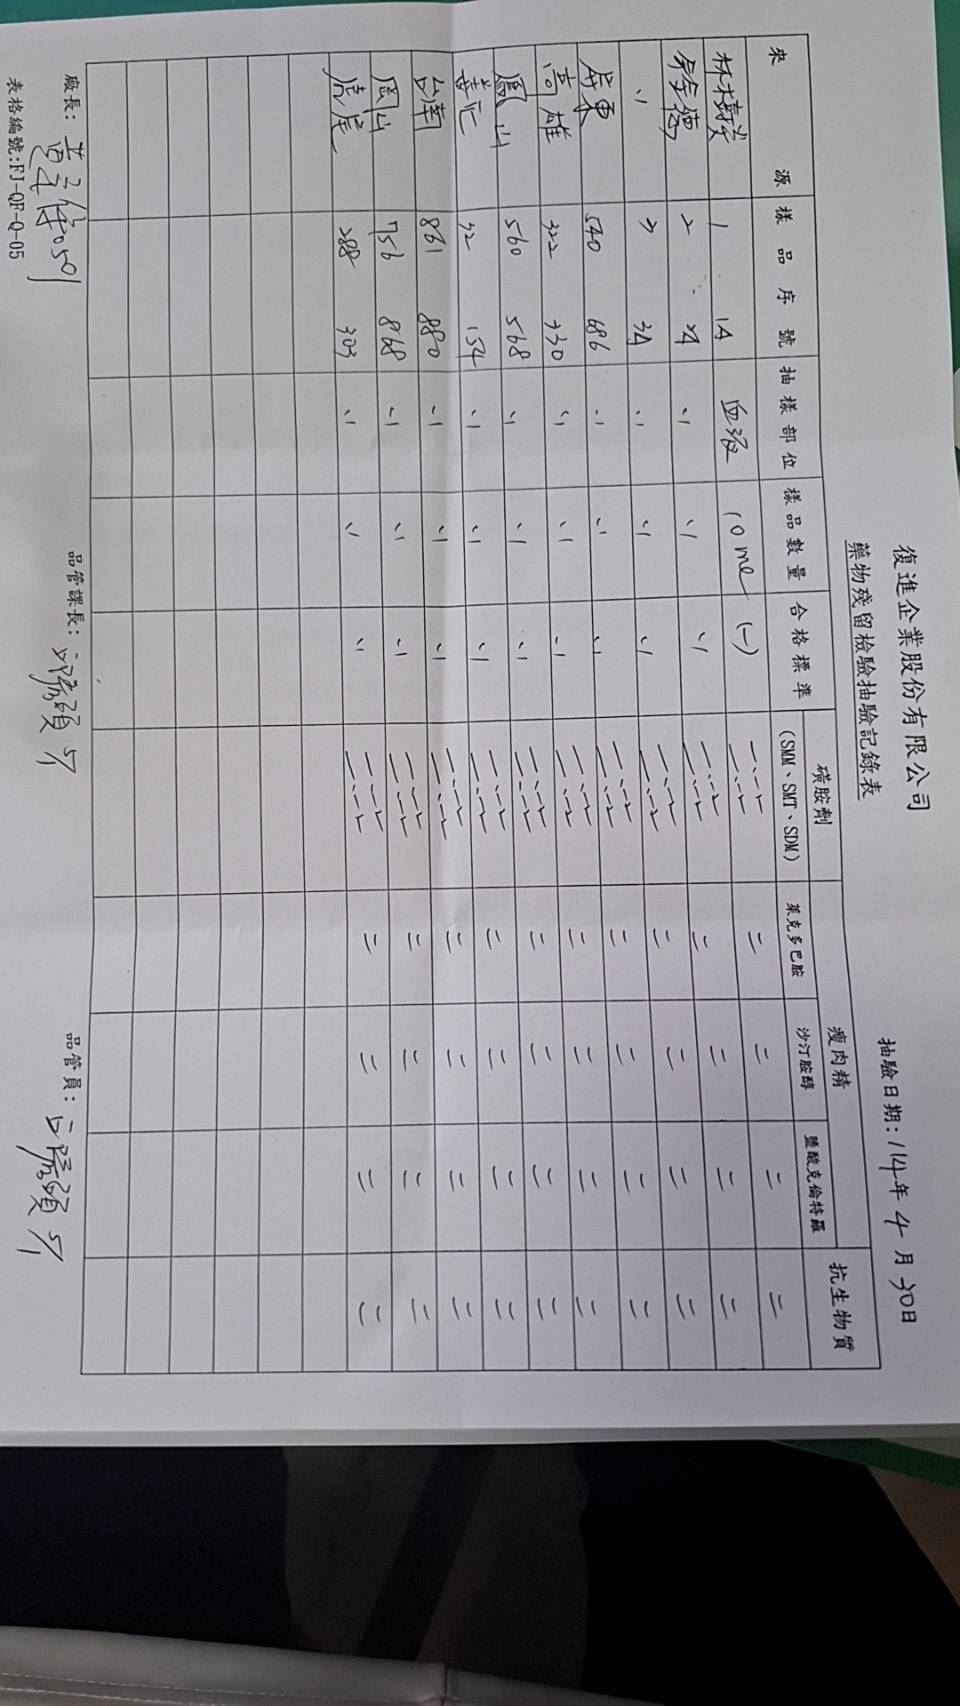 復進企業股份有限公司
藥物殘留檢驗抽驗記錄表
抽驗日期:114年4月30日
來源 樣品序號 抽樣部位 樣品數量 合格標準 磺胺劑 (SMM、SMT、SDM) 瘦肉精 萊克多巴胺 沙汀胺醇 鹽酸克倫特羅 抗生物質
1 1A 血液 10 ml (-) -、-、- -、-、- = = = =
2 2A 〃 〃 〃 -、-、- -、-、- = = = =
〃 3 3A 〃 〃 〃 -、-、- -、-、- = = = =
屏東 540 686 〃 〃 〃 -、-、- -、-、- = = = =
高雄 322 330 〃 〃 〃 -、-、- -、-、- = = = =
鳳山 560 568 〃 〃 〃 -、-、- -、-、- = = = =
32 154 〃 〃 〃 -、-、- -、-、- = = = =
台南 861 880 〃 〃 〃 -、-、- -、-、- = = = =
岡山 756 868 〃 〃 〃 -、-、- -、-、- = = = =
虎尾 288 303 〃 〃 〃 -、-、- -、-、- = = = =
廠長: 0501 品管課長: 5/1 品管員: 5/1
表格編號:FJ-QF-Q-05